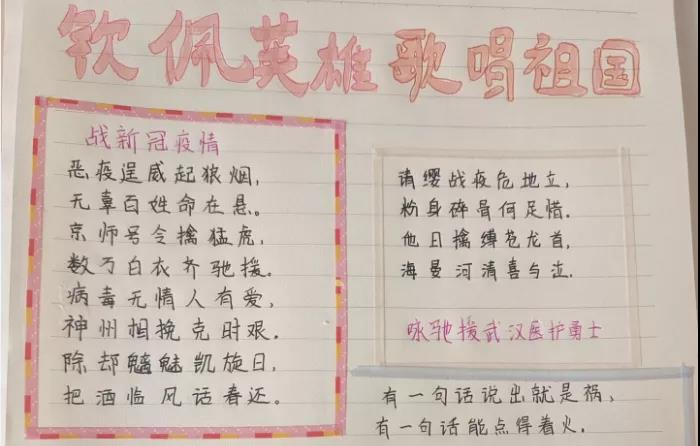 钦佩英雄歌唱祖国
战新冠疫情
恶疫逞威起狼烟,
无辜百姓命在悬。
京师号令擒猛虎,
数万白衣齐驰援。
病毒无情人有爱,
神州相挽克时艰。
除却魑魅凯旋日,
把酒临风话春还。
请缨战疫危地立,
粉身碎骨何足惜.
他日擒缚苍龙首,
海晏河清喜与泣.
咏驰援武汉医护勇士
有一句话说出就是祸,
有一句话能点得着火.